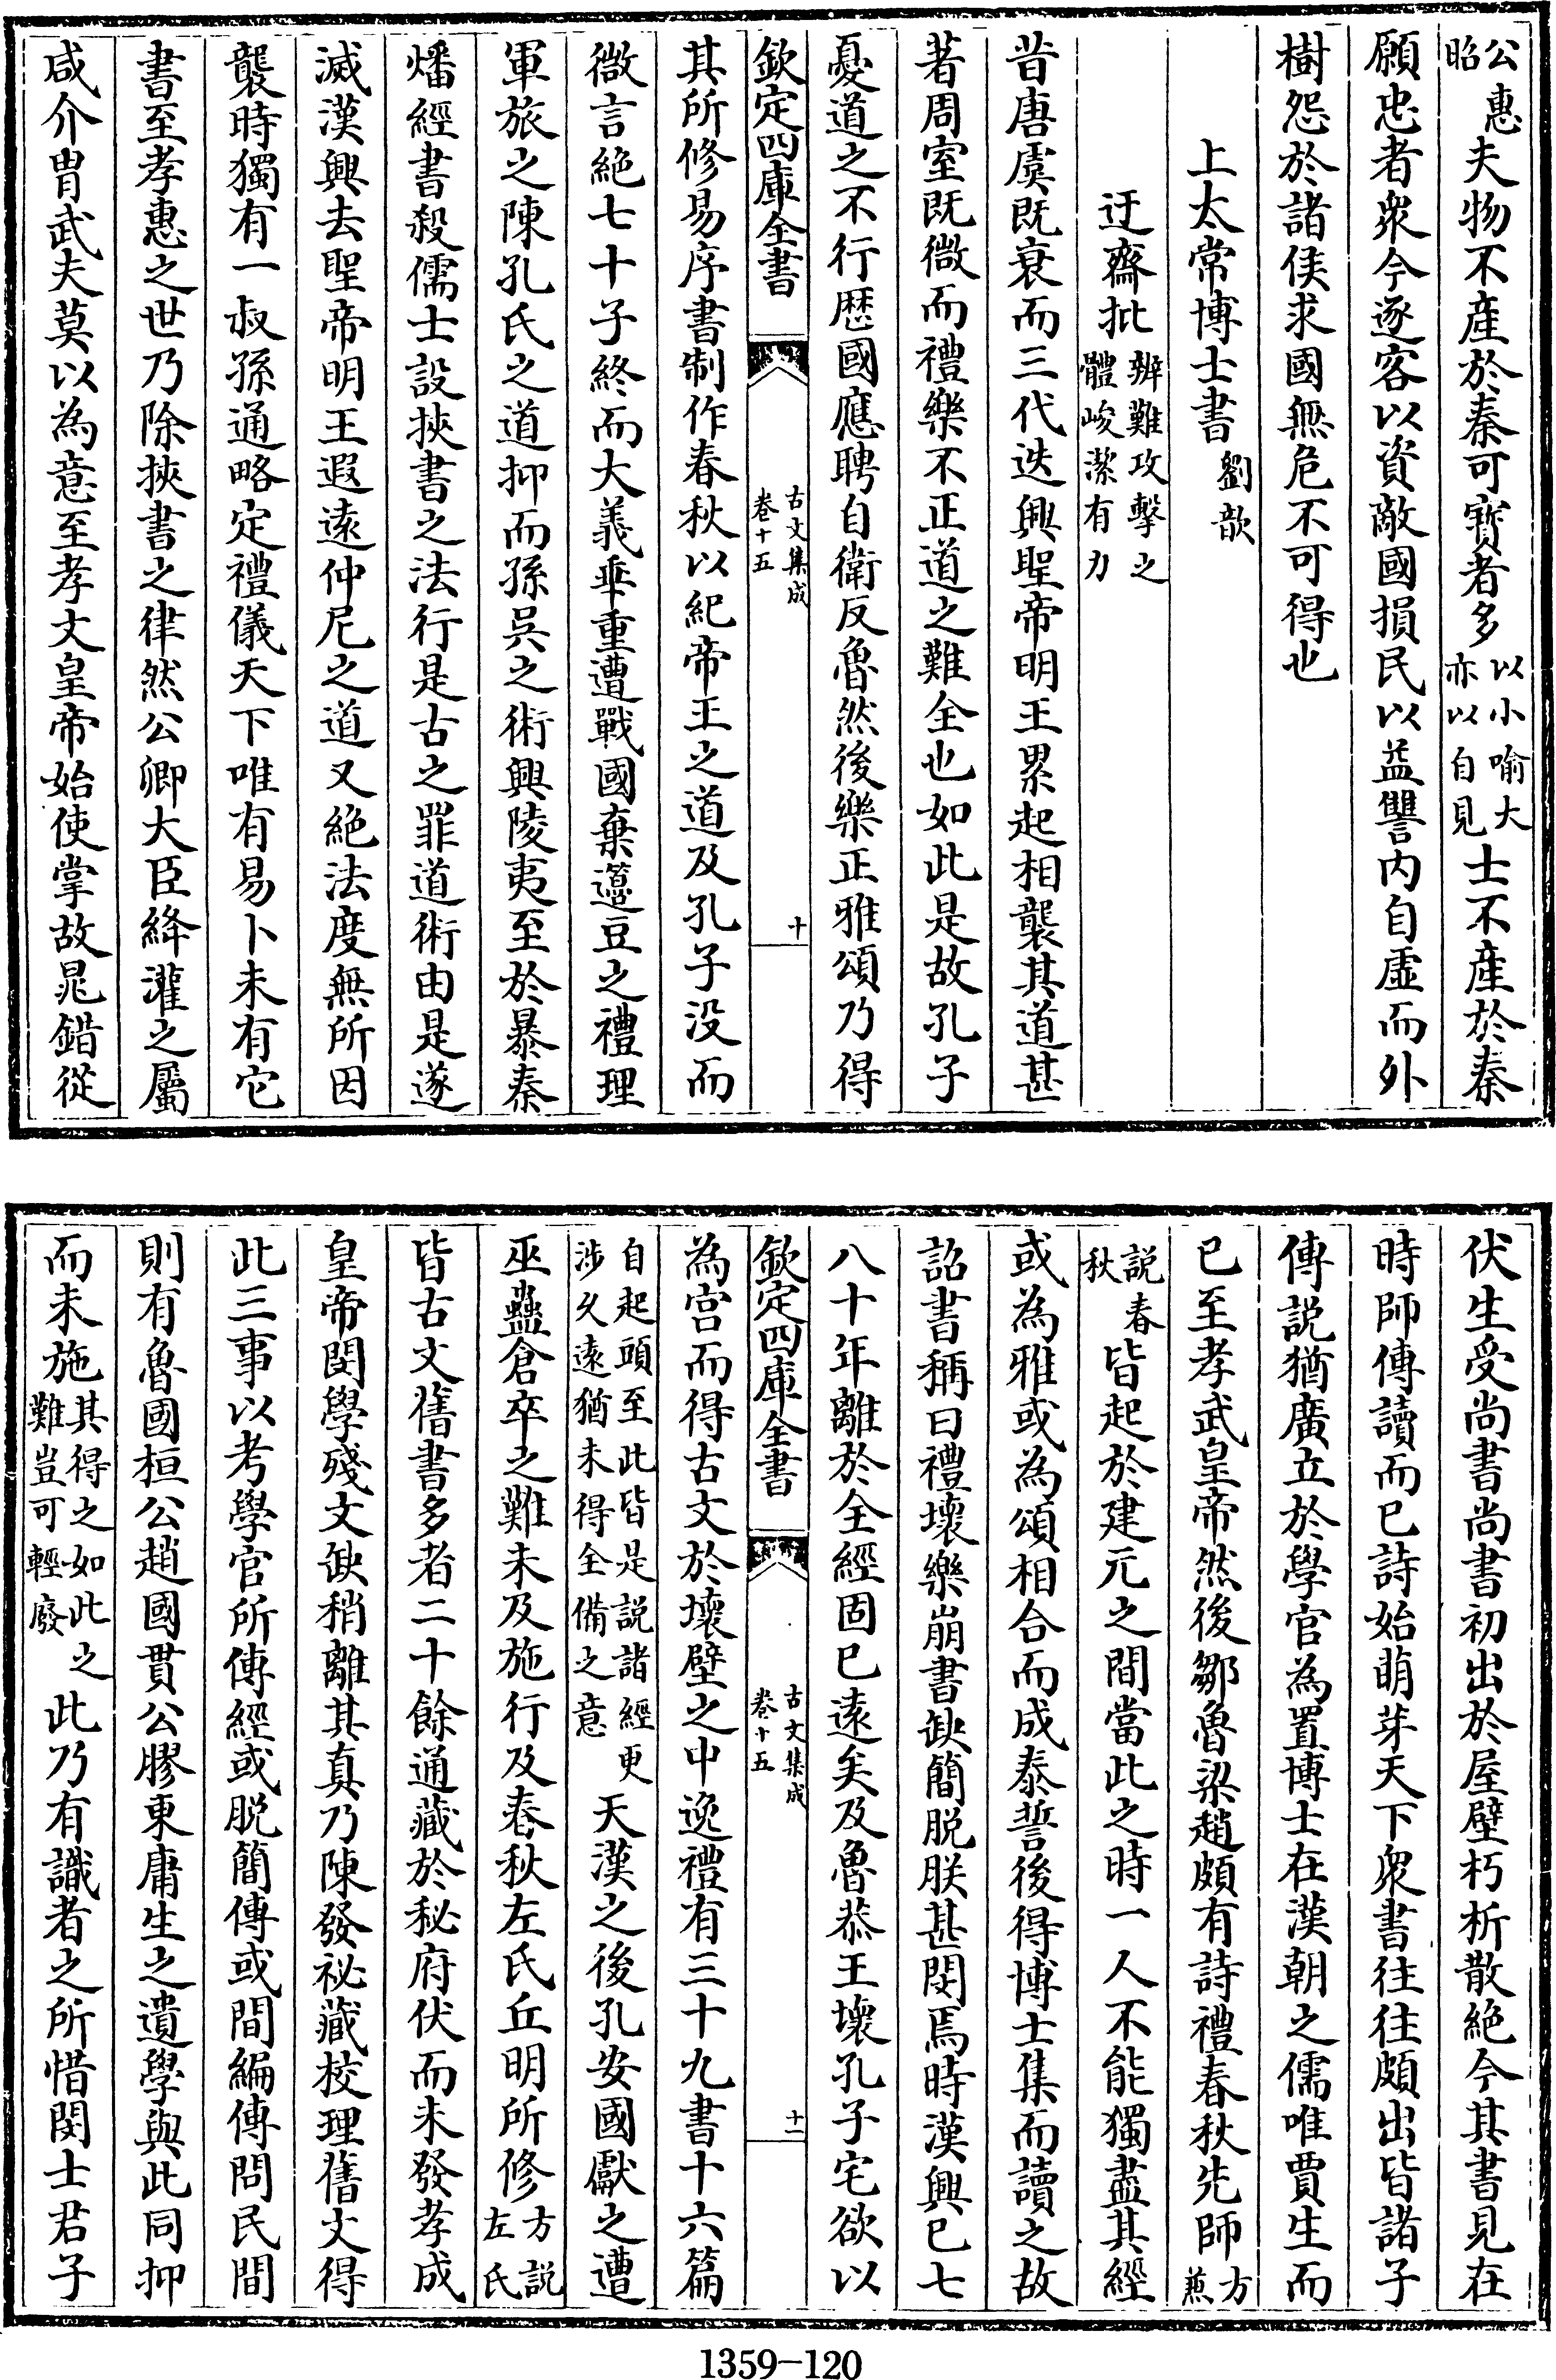 公惠昭夫物不產於秦可寳者多以小喻大亦以自見士不產於秦
願忠者衆今逐客以資敵國損民以益讐内自虛而外
樹怨於諸侯求國無危不可得也
上太常博士書 劉歆
迂齋批辨難攻擊之體峻潔有力
昔唐虞既衰而三代迭興聖帝明王累起相襲其道甚
著周室既微而禮樂不正道之難全也如此是故孔子
憂道之不行歴國應聘自衛反魯然後樂正雅頌乃得
欽定四庫全書 古文集成 卷十五 十
其所修易序書制作春秋以紀帝王之道及孔子没而
微言絶七十子終而大義乖重遭戰國棄籩豆之禮理
軍旅之陳孔氏之道抑而孫吳之術興陵夷至於暴秦
燔經書殺儒士設挾書之法行是古之罪道術由是遂
滅漢興去聖帝明王遐遠仲尼之道又絶法度無所因
襲時獨有一叔孫通略定禮儀天下唯有易卜未有它
書至孝惠之世乃除挾書之律然公卿大臣絳灌之屬
咸介胄武夫莫以為意至孝文皇帝始使掌故晁錯從
伏生受尚書尚書初出於屋壁朽折散絶今其書見在
時師傳讀而已詩始萌芽天下衆書往往頗出皆諸子
傳説猶廣立於學官為置博士在漢朝之儒唯賈生而
已至孝武皇帝然後鄒魯梁趙頗有詩禮春秋先師方蕉
説春秋皆起於建元之間當此之時一人不能獨盡其經
或為雅或為頌相合而成泰誓後得博士集而讀之故
詔書稱曰禮壞樂崩書缺簡脱朕甚閔焉時漢興已七
八十年離於全經固已遠矣及魯恭王壞孔子宅欲以
欽定四庫全書 古文集成 卷十五 十一
為宫而得古文於壞壁之中逸禮有三十九書十六篇
自起頭至此皆是説諸經更涉久遠猶未得全備之意天漢之後孔安國獻之遭
巫蠱倉卒之難未及施行及春秋左氏丘明所修方説左氏
皆古文舊書多者二十餘通藏於秘府伏而未發孝成
皇帝閔學殘文缺稍離其真乃陳發祕藏校理舊文得
此三事以考學官所傳經或脱簡傳或間編傳問民間
則有魯國桓公趙國貫公膠東庸生之遺學與此同抑
而未施其得之如此之難豈可輕廢此乃有識者之所惜閔士君子
1359-120